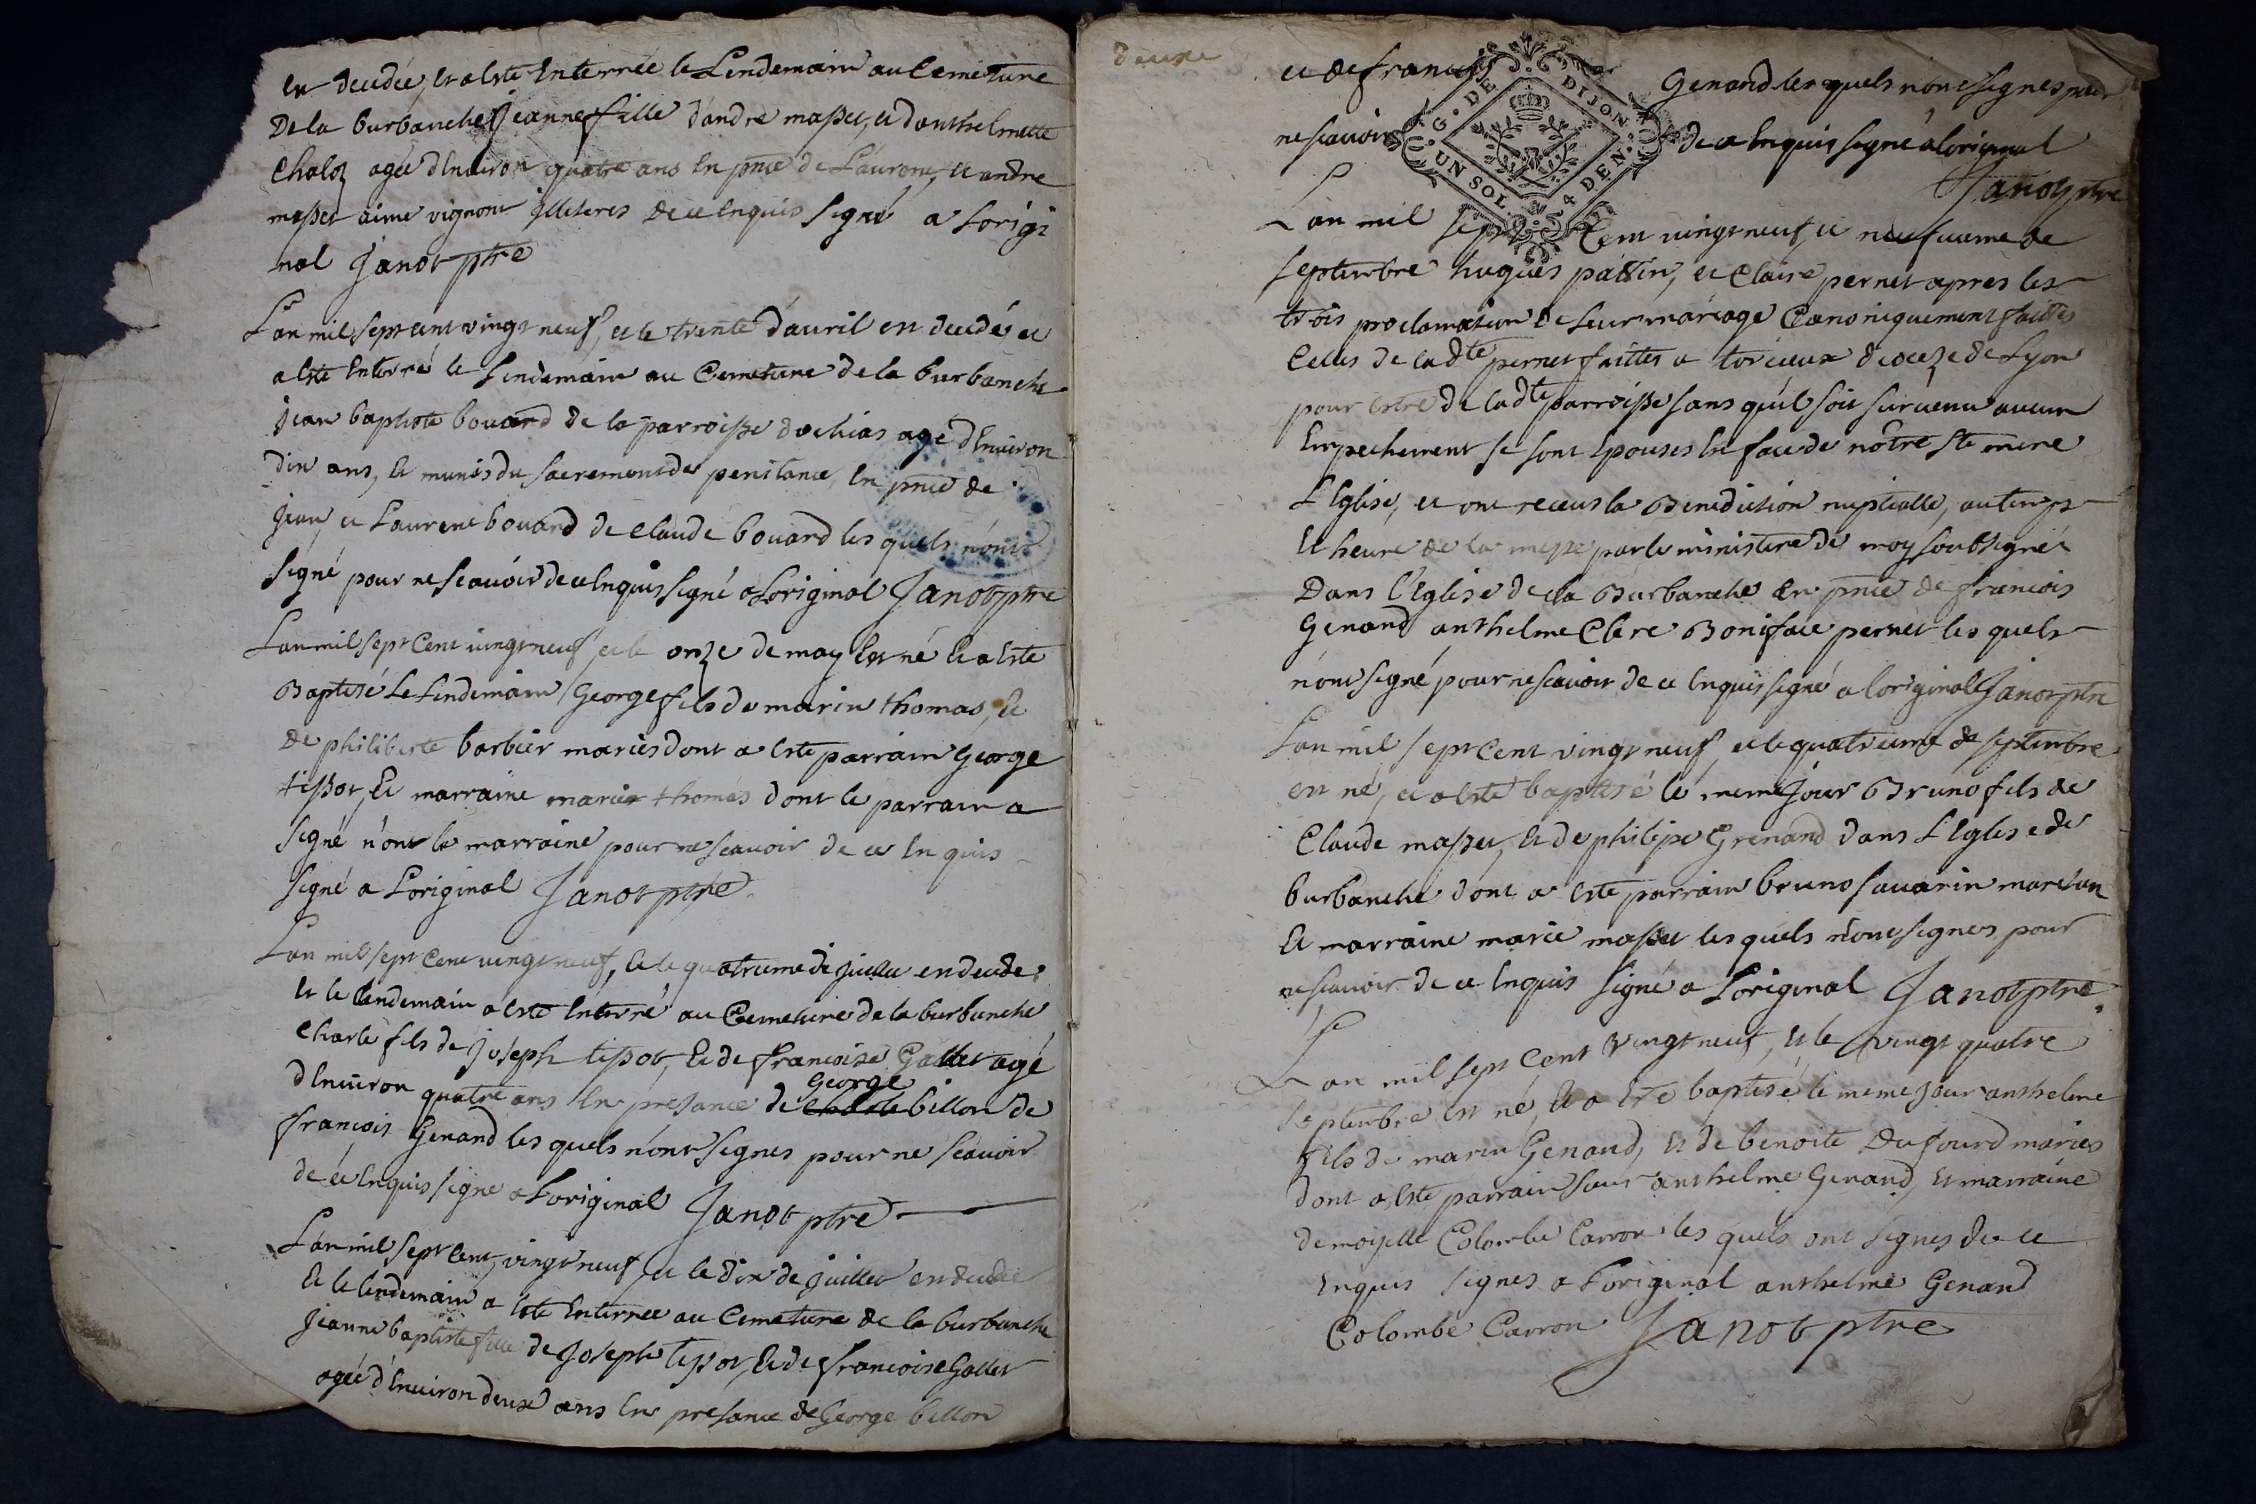 en decedée, et a esté enterrée le Lendemain au Cemetiere
De la burbanche Jeanne fille d'andré masset, et d'anthelmette
Chaloz agée d'environ quatre ans en pnce de Laurent, et andre
masset aime vignont illiteres de ce enquis signé a Lorigi
nal Janot ptre
L'an mil sept cent vingt neuf, et le trente d'avril en decedé et
a esté enterré le Lendemain au Cemetiere de la burbanche
jean baptiste bouard de la parroisse dochias agé d'environ
dix ans, et munis du sacrement de penitance en pnce de
jean et Laurent bouard de claude bouard les quels n'ont
signé pour ne scavoir de ce enquis signé a Loriginal Janot ptre
L'an mil sept Cent vingt neuf et le onze de may est né et a esté
Baptisé Le Lendemain George fils de marin thomas, et
de philiberte barbier mariés dont a esté parrain George
tissot, Et marraine marie thomas dont le parrain a
signé n'ont la marraine pour ne scavoir de ce enquis
signé a L'original Janot ptre
L'an mil sept Cent vingt neuf, et le quatrieme de juillet en decedé
et le lendemain a esté enterré au Cemetiere de la burbanche
Charle fils de joseph tissot, Et de francoise Gallet agé
George
d'environ quatre ans en présance de Charle billon de
francois Genand les quels n'ont signes pour ne scavoir
de ce enquis signé a L'original Janot ptre
L'an mil sept cent vingt neuf et le dix de juillet en decedée
et le lendemain a esté enterrée au Cemetiere de la burbanche
jeanne baptiste fille de joseph tissot, Et de francoise Gallet
agée d'environ deux ans en presance de George billon
deuxe
et de francois Genand les quels n'ont signes pour
ne scavoir de ce enquis signé a loriginal
Janot ptre
G. DE DIJON
UN SOL 4 DEN.
L'an mil sept Cent vingt neuf, et neufvieme de
septembre hugues pattin, et Claire pernet apres les
trois proclamation de leur mariage Canoniquement faittes
Celles de ladte pernet faittes a torcieux dioceze de Lyon
pour estre de ladte parroisse sans qu'il soit survenu aucun
Empechement se sont Epousés En face de nôtre Ste mere
L'Eglise, et ont receus la Benediction nuptialle, au temps
et heure de la messe par le ministere de moy soubsigné
Dans l'Eglise de la Burbanche En pnce de francois
Genand anthelme Clere Boniface pernet les quels
n'ont signé pour ne scavoir de ce enquis signé a loriginal Janot ptre
L'an mil sept Cent vingt neuf et le quatrieme de septembre
en né, et a esté baptisé le meme jour Bruno fils de
Claude masset, et de philipe Grenand dans L'Eglise de
burbanche dont a esté parrain bruno savarin
et marraine marie masset les quels n'ont signes pour
ne scavoir de ce enquis signé a L'original Janot ptre
L'an mil sept Cent vingt neuf, et le vingt quatre
septembre est né, Et a esté baptisé le meme jour anthelme
fils de marin Genand, et de benoite Dufourd mariés
dont a esté parrain sieur anthelme Genand, et marraine
demoiselle Colombe Carron les quels ont signes de ce
enquis signes a L'original anthelme Genand
Colombe Carron Janot ptre